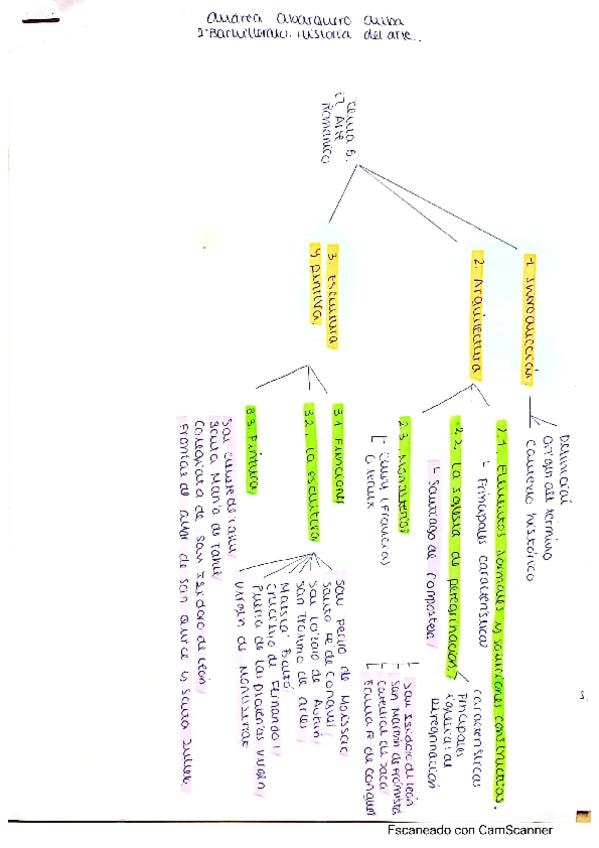 2º Bachillerato. Historia del arte..
Tema 5.
Arte
Románico
1. Introducción.
Definición
Origen del término
Contexto histórico
2. Arquitectura
2.1. Elementos formales y soluciones constructivas.
Principales características
2.2. La iglesia de peregrinación.
características
Principales
iglesias de
peregrinación
Santiago de Compostela/
San Isidoro de León
San Martín de Frómista
Catedral de Jaca
Santa Fe de Conques
2.3. Monasterios
Cluny (Francia)
3. Escultura
y pintura.
3.1 Funciones
3.2. La escultura
San Pedro de Moissac/
Santa Fe de Conques/
San Lázaro de Autun/
San Trófimo de Arles/
Maestà Batlló
Crucifijo de Fernando I
Virgen de Montserrat
3.3. Pintura
San Clemente de Tahull/
Santa María de Tahull
Colegiata de San Isidoro de León/
Frontal de altar de San Quirce y Santa
5.
Escaneado con CamScanner